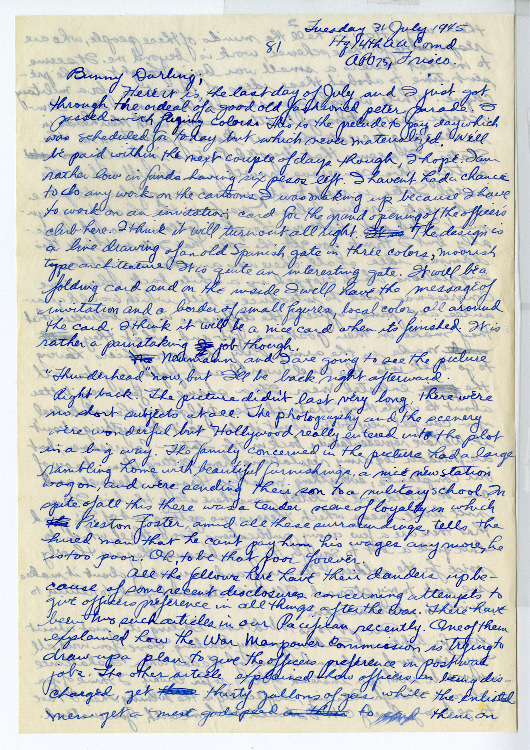 Tuesday 31 July 1945
81 Hq 14th AA Comd
APO 75, Frisco.
Bunny Darling,
Here it is, the last day of July and I just got
through the ordeal of a good old fashioned peter parade. I
passed with flying colors. This is the prelude to pay day which
was scheduled for today but which never materialized. We'll
be paid within the next couple of days though, I hope. I am
rather low in funds having six pesos left. I haven't had a chance
to do any work on the cartoons I was making up because I have
to work on an invitation card for the grand opening of the officers
club here. I think it will turn out all right. The design is
a line drawing of an old Spanish gate in three colors, moorish
type architecture. It is quite an interesting gate. It will be a
folding card and on the inside I will have the message of
invitation and a border of small figures, local color, all around
the card. I think it will be a nice card when its finished. It is
rather a painstaking job though.
and I are going to see the picture
"Thunderhead" now but I'll be back right afterward.
Right back. The picture didn't last very long, there were
no short subjects at all. The photography and the scenery
were wonderful but Hollywood really entered into the plot
in a big way. The family concerned in the picture had a large
rambling home with beautiful furnishings, a nice new station
wagon, and were sending their son to a military school. In
spite of all this there was a tender scene of loyalty in which
Preston Foster, amid all these surroundings, tells the
hired man that he can't pay him his wages any more, he
is too poor. Oh, to be that poor forever.
All the fellows here have their danders up be-
cause of some recent disclosures concerning attempts to
give officers preference in all things after the War. There have
been two such articles in our Pacifican recently. One of them
explained how the War Manpower Commission is trying to
draw up a plan to give the officers preference in postwar
jobs. The other article explained how officers, on being dis-
charged, get thirty gallons of gas, while the enlisted
men get a mere godspeed to them on